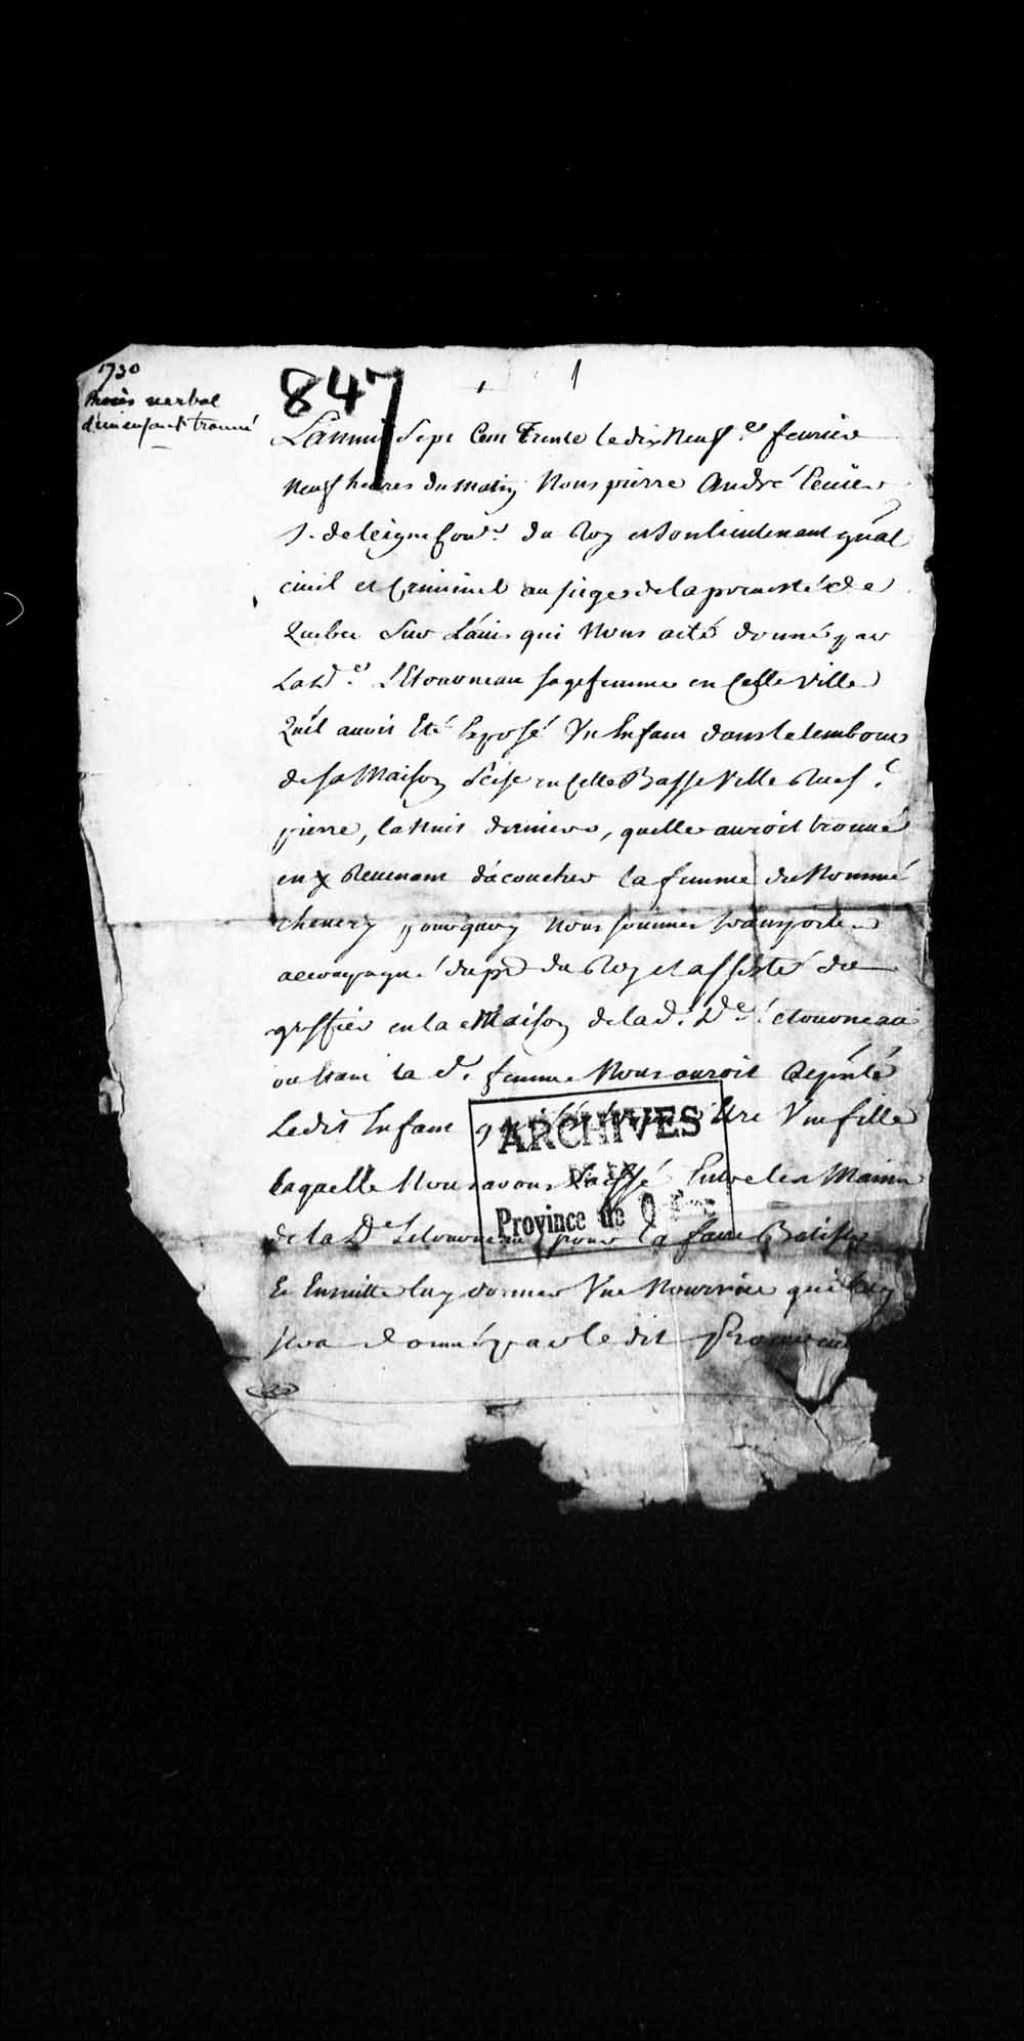 1730
Procès verbal
d'un enfant trouvé
847
1
L'an mil Sept Cent Trente le dix Neufe. fevrier
Neuf heures du matin Nous pierre André
s. de leigne Conr. du Roy et son lieutenant gñal
civil et Criminel au siege de la prevosté de
Quebec Sur L'avis qui Nous a eté donné par
La De. Letourneau sage femme en Cette ville
Quil avoit Eté Exposé Vn Enfant dans le tembour
de sa Maison Scise en Cette Basse Ville Rue St.
pierre, la Nuit derniere, quelle auroit trouvé
en Revenant d'acoucher la femme du Nommé
pourquoy Nous sommes transporté
accompagné du pr du Roy et assisté du
greffier en la Maison de la d. De. Letourneau
ou Etant la de. femme Nous auroit
Ledit Enfant Etre Vne fille
Laquelle Nous avons Laissé Entre les Mains
de la De Letourneau pour la faire Batiser
Et Ensuitte luy donner Vne Nourrice qui luy
sera donné par le dit
ARCHIVES
DE LA
Province de Q